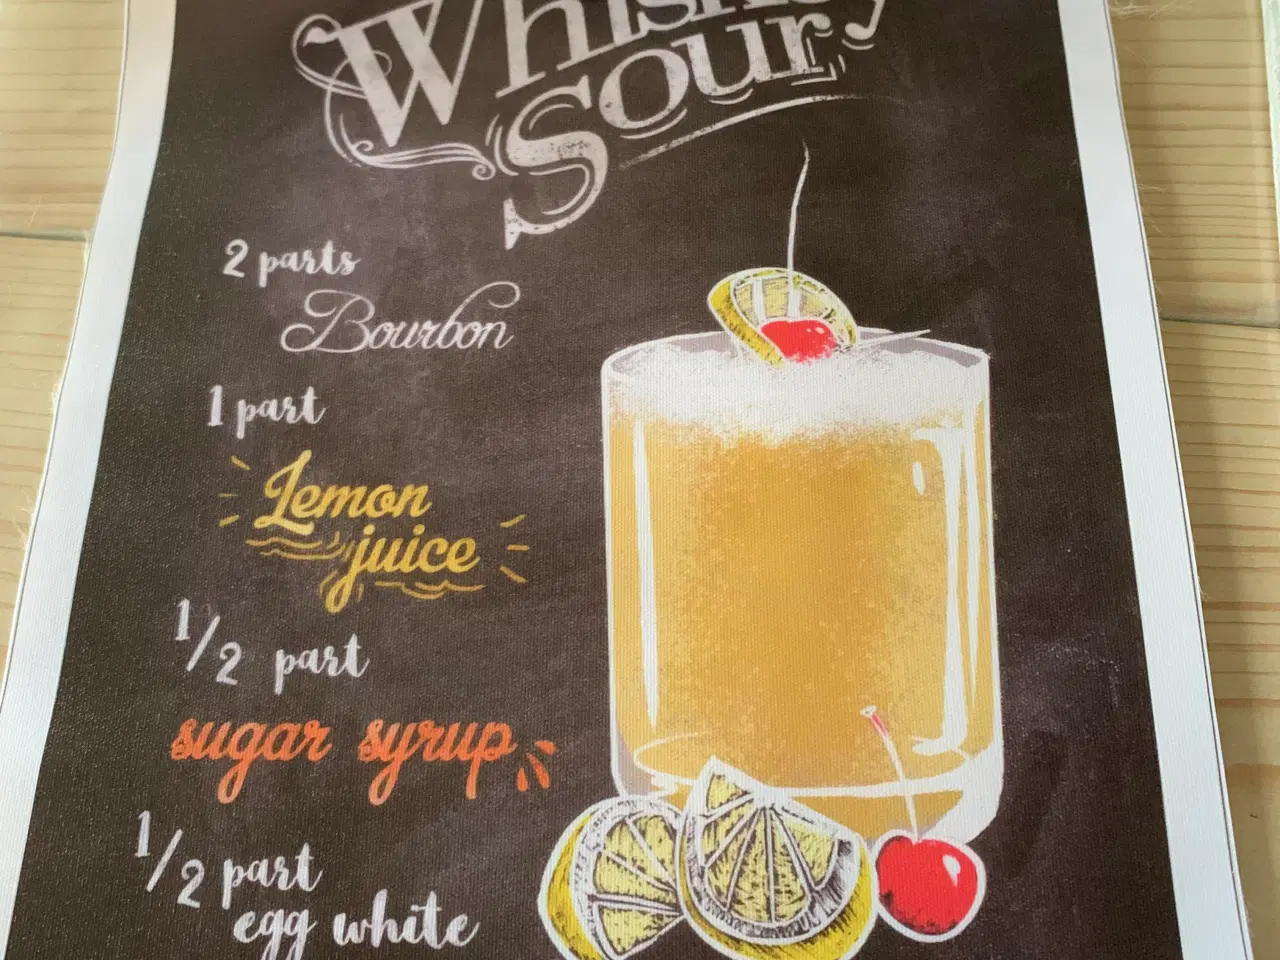 Whiskey
Sour
2 parts
Bourbon
1 part
Lemon
juice
1/2 part
sugar syrup
1/2 part
egg white